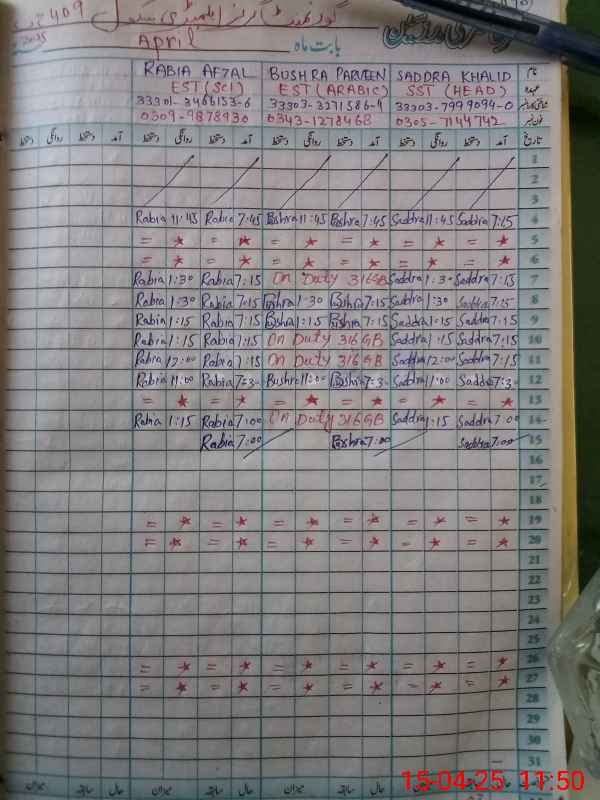 گورنمنٹ گرلز ایلیمنٹری سکول 409
حاضری رجسٹرین
بابت ماہ April 2025
نام SADDRA KHALID BUSHRA PARVEEN RABIA AFZAL
عہدہ SST (HEAD) EST (ARABIC) EST (Sci)
33303-7999094-0 33303-3271586-4 33301-3466153-6
فون نمبر 0305-7144742 0343-1278468 0309-9878930
تاریخ آمد دستخط روانگی دستخط آمد دستخط روانگی دستخط آمد دستخط روانگی دستخط آمد دستخط روانگی دستخط
1
2
3
Rabia 11:45 Rabia 7:45 Bushra 11:45 Bushra 7:45 Saddra 11:45 Saddra 7:15 4
= ★ = ★ = ★ = ★ = ★ = ★ 5
= ★ = ★ = ★ = ★ = ★ = ★ 6
Rabia 1:30 Rabia 7:15 On Duty 316GB Saddra 1:30 Saddra 7:15 7
Rabia 1:30 Rabia 7:15 Bushra 1:30 Bushra 7:15 Saddra 1:30 Saddra 7:15 8
Rabia 1:15 Rabia 7:15 Bushra 1:15 Bushra 7:15 Saddra 1:15 Saddra 7:15 9
Rabia 1:15 Rabia 7:15 On Duty 316GB Saddra 1:15 Saddra 7:15 10
Rabia 12:00 Rabia 7:15 On Duty 316GB Saddra 12:00 Saddra 7:15 11
Rabia 11:00 Rabia 7:30 Bushra 11:00 Bushra 7:30 Saddra 11:00 Saddra 7:30 12
= ★ = ★ = ★ = ★ = ★ = ★ 13
Rabia 1:15 Rabia 7:00 On Duty 316GB Saddra 1:15 Saddra 7:00 14
Rabia 7:00 Bushra 7:00 Saddra 7:00 15
16
17
18
= ★ = ★ = ★ = ★ = ★ = ★ 19
= ★ = ★ = ★ = ★ = ★ = ★ 20
21
22
23
24
25
= ★ = ★ = ★ = ★ = ★ = ★ 26
= ★ = ★ = ★ = ★ = ★ = ★ 27
28
29
30
31
حال سابقہ میزان حال سابقہ میزان حال سابقہ میزان حال سابقہ میزان
15-04-25 11:50